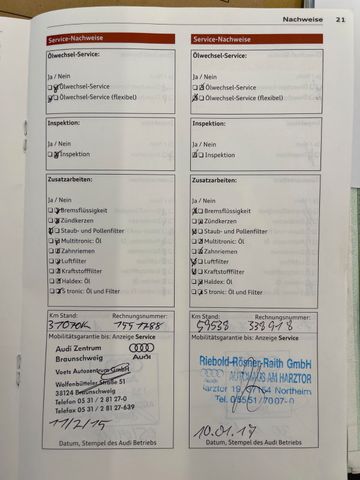 Nachweise 21
Service-Nachweise
Ölwechsel-Service:
Ja / Nein
Ölwechsel-Service
Ölwechsel-Service (flexibel)
Inspektion:
Ja / Nein
Inspektion
Zusatzarbeiten:
Ja / Nein
Bremsflüssigkeit
Zündkerzen
Staub- und Pollenfilter
Multitronic: Öl
Zahnriemen
Luftfilter
Kraftstofffilter
Haldex: Öl
S tronic: Öl und Filter
Km Stand: Rechnungsnummer:
Mobilitätsgarantie bis: Anzeige Service
Audi Zentrum
Braunschweig
Audi
Voets Autozentrum GmbH
Wolfenbütteler Straße 51
38124 Braunschweig
Telefon 05 31 / 2 81 27-0
Telefax 05 31 / 2 81 27-639
11/2/15
Datum, Stempel des Audi Betriebs
Service-Nachweise
Ölwechsel-Service:
Ja / Nein
Ölwechsel-Service
Ölwechsel-Service (flexibel)
Inspektion:
Ja / Nein
Inspektion
Zusatzarbeiten:
Ja / Nein
Bremsflüssigkeit
Zündkerzen
Staub- und Pollenfilter
Multitronic: Öl
Zahnriemen
Luftfilter
Kraftstofffilter
Haldex: Öl
S tronic: Öl und Filter
Km Stand: Rechnungsnummer:
59538 338918
Mobilitätsgarantie bis: Anzeige Service
Riebold-Rösner-Raith GmbH
AUTOHAUS AM HARZTOR
Northeim
10.01.17
Datum, Stempel des Audi Betriebs